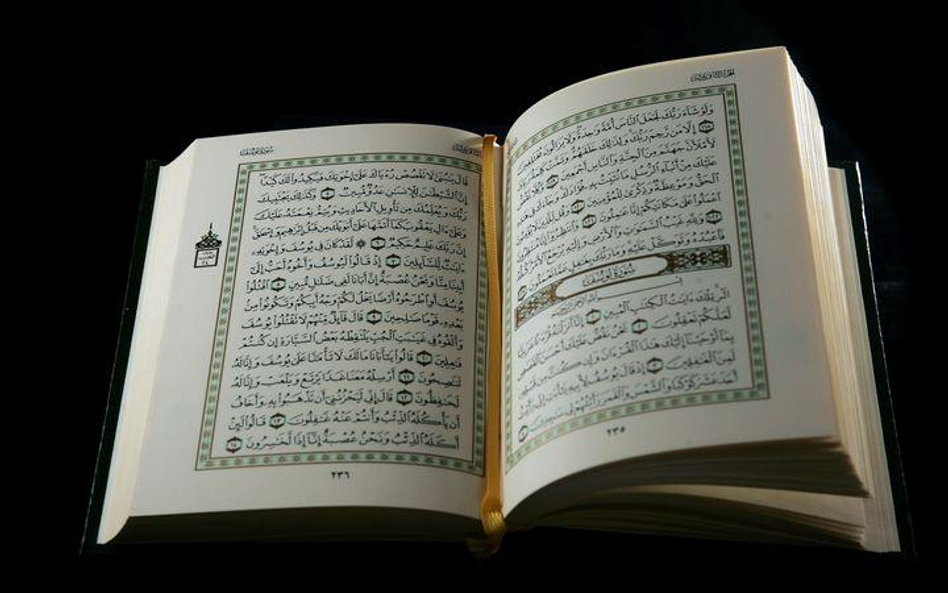 الجزء الثاني عشر
وَلَوْ شَآءَ رَبُّكَ لَجَعَلَ ٱلنَّاسَ أُمَّةً وَٰحِدَةً وَلَا يَزَالُونَ مُخْتَلِفِينَ
١١٨ إِلَّا مَن رَّحِمَ رَبُّكَ وَلِذَٰلِكَ خَلَقَهُمْ وَتَمَّتْ كَلِمَةُ رَبِّكَ
لَأَمْلَأَنَّ جَهَنَّمَ مِنَ ٱلْجِنَّةِ وَٱلنَّاسِ أَجْمَعِينَ ١١٩ وَكُلًّا نَّقُصُّ
عَلَيْكَ مِنْ أَنۢبَآءِ ٱلرُّسُلِ مَا نُثَبِّتُ بِهِۦ فُؤَادَكَ وَجَآءَكَ فِى هَٰذِهِ
ٱلْحَقُّ وَمَوْعِظَةٌ وَذِكْرَىٰ لِلْمُؤْمِنِينَ ١٢٠ وَقُل لِّلَّذِينَ لَا يُؤْمِنُونَ
ٱعْمَلُوا۟ عَلَىٰ مَكَانَتِكُمْ إِنَّا عَٰمِلُونَ ١٢١ وَٱنتَظِرُوٓا۟ إِنَّا مُنتَظِرُونَ
١٢٢ وَلِلَّهِ غَيْبُ ٱلسَّمَٰوَٰتِ وَٱلْأَرْضِ وَإِلَيْهِ يُرْجَعُ ٱلْأَمْرُ كُلُّهُۥ
فَٱعْبُدْهُ وَتَوَكَّلْ عَلَيْهِ وَمَا رَبُّكَ بِغَٰفِلٍ عَمَّا تَعْمَلُونَ ١٢٣
سُورَةُ يُوسُفَ
بِسْمِ ٱللَّهِ ٱلرَّحْمَٰنِ ٱلرَّحِيمِ
الٓر تِلْكَ ءَايَٰتُ ٱلْكِتَٰبِ ٱلْمُبِينِ ١ إِنَّآ أَنزَلْنَٰهُ قُرْءَٰنًا عَرَبِيًّا
لَّعَلَّكُمْ تَعْقِلُونَ ٢ نَحْنُ نَقُصُّ عَلَيْكَ أَحْسَنَ ٱلْقَصَصِ
بِمَآ أَوْحَيْنَآ إِلَيْكَ هَٰذَا ٱلْقُرْءَانَ وَإِن كُنتَ مِن قَبْلِهِۦ
لَمِنَ ٱلْغَٰفِلِينَ ٣ إِذْ قَالَ يُوسُفُ لِأَبِيهِ يَٰٓأَبَتِ إِنِّى رَأَيْتُ
أَحَدَ عَشَرَ كَوْكَبًا وَٱلشَّمْسَ وَٱلْقَمَرَ رَأَيْتُهُمْ لِى سَٰجِدِينَ ٤
٢٣٥
سُورَةُ يُوسُفَ
قَالَ يَٰبُنَىَّ لَا تَقْصُصْ رُءْيَاكَ عَلَىٰٓ إِخْوَتِكَ فَيَكِيدُوا۟ لَكَ كَيْدًا
إِنَّ ٱلشَّيْطَٰنَ لِلْإِنسَٰنِ عَدُوٌّ مُّبِينٌ ٥ وَكَذَٰلِكَ يَجْتَبِيكَ
رَبُّكَ وَيُعَلِّمُكَ مِن تَأْوِيلِ ٱلْأَحَادِيثِ وَيُتِمُّ نِعْمَتَهُۥ عَلَيْكَ
وَعَلَىٰٓ ءَالِ يَعْقُوبَ كَمَآ أَتَمَّهَا عَلَىٰٓ أَبَوَيْكَ مِن قَبْلُ إِبْرَٰهِيمَ وَإِسْحَٰقَ
إِنَّ رَبَّكَ عَلِيمٌ حَكِيمٌ ٦ ۞ لَّقَدْ كَانَ فِى يُوسُفَ وَإِخْوَتِهِۦٓ
ءَايَٰتٌ لِّلسَّآئِلِينَ ٧ إِذْ قَالُوا۟ لَيُوسُفُ وَأَخُوهُ أَحَبُّ إِلَىٰٓ
أَبِينَا مِنَّا وَنَحْنُ عُصْبَةٌ إِنَّ أَبَانَا لَفِى ضَلَٰلٍ مُّبِينٍ ٨ ٱقْتُلُوا۟
يُوسُفَ أَوِ ٱطْرَحُوهُ أَرْضًا يَخْلُ لَكُمْ وَجْهُ أَبِيكُمْ وَتَكُونُوا۟ مِنۢ
بَعْدِهِۦ قَوْمًا صَٰلِحِينَ ٩ قَالَ قَآئِلٌ مِّنْهُمْ لَا تَقْتُلُوا۟ يُوسُفَ
وَأَلْقُوهُ فِى غَيَٰبَتِ ٱلْجُبِّ يَلْتَقِطْهُ بَعْضُ ٱلسَّيَّارَةِ إِن كُنتُمْ
فَٰعِلِينَ ١٠ قَالُوا۟ يَٰٓأَبَانَا مَا لَكَ لَا تَأْمَ۫نَّا عَلَىٰ يُوسُفَ وَإِنَّا لَهُۥ
لَنَٰصِحُونَ ١١ أَرْسِلْهُ مَعَنَا غَدًا يَرْتَعْ وَيَلْعَبْ وَإِنَّا لَهُۥ
لَحَٰفِظُونَ ١٢ قَالَ إِنِّى لَيَحْزُنُنِىٓ أَن تَذْهَبُوا۟ بِهِۦ وَأَخَافُ
أَن يَأْكُلَهُ ٱلذِّئْبُ وَأَنتُمْ عَنْهُ غَٰفِلُونَ ١٣ قَالُوا۟ لَئِنْ
أَكَلَهُ ٱلذِّئْبُ وَنَحْنُ عُصْبَةٌ إِنَّآ إِذًا لَّخَٰسِرُونَ ١٤
٢٣٦